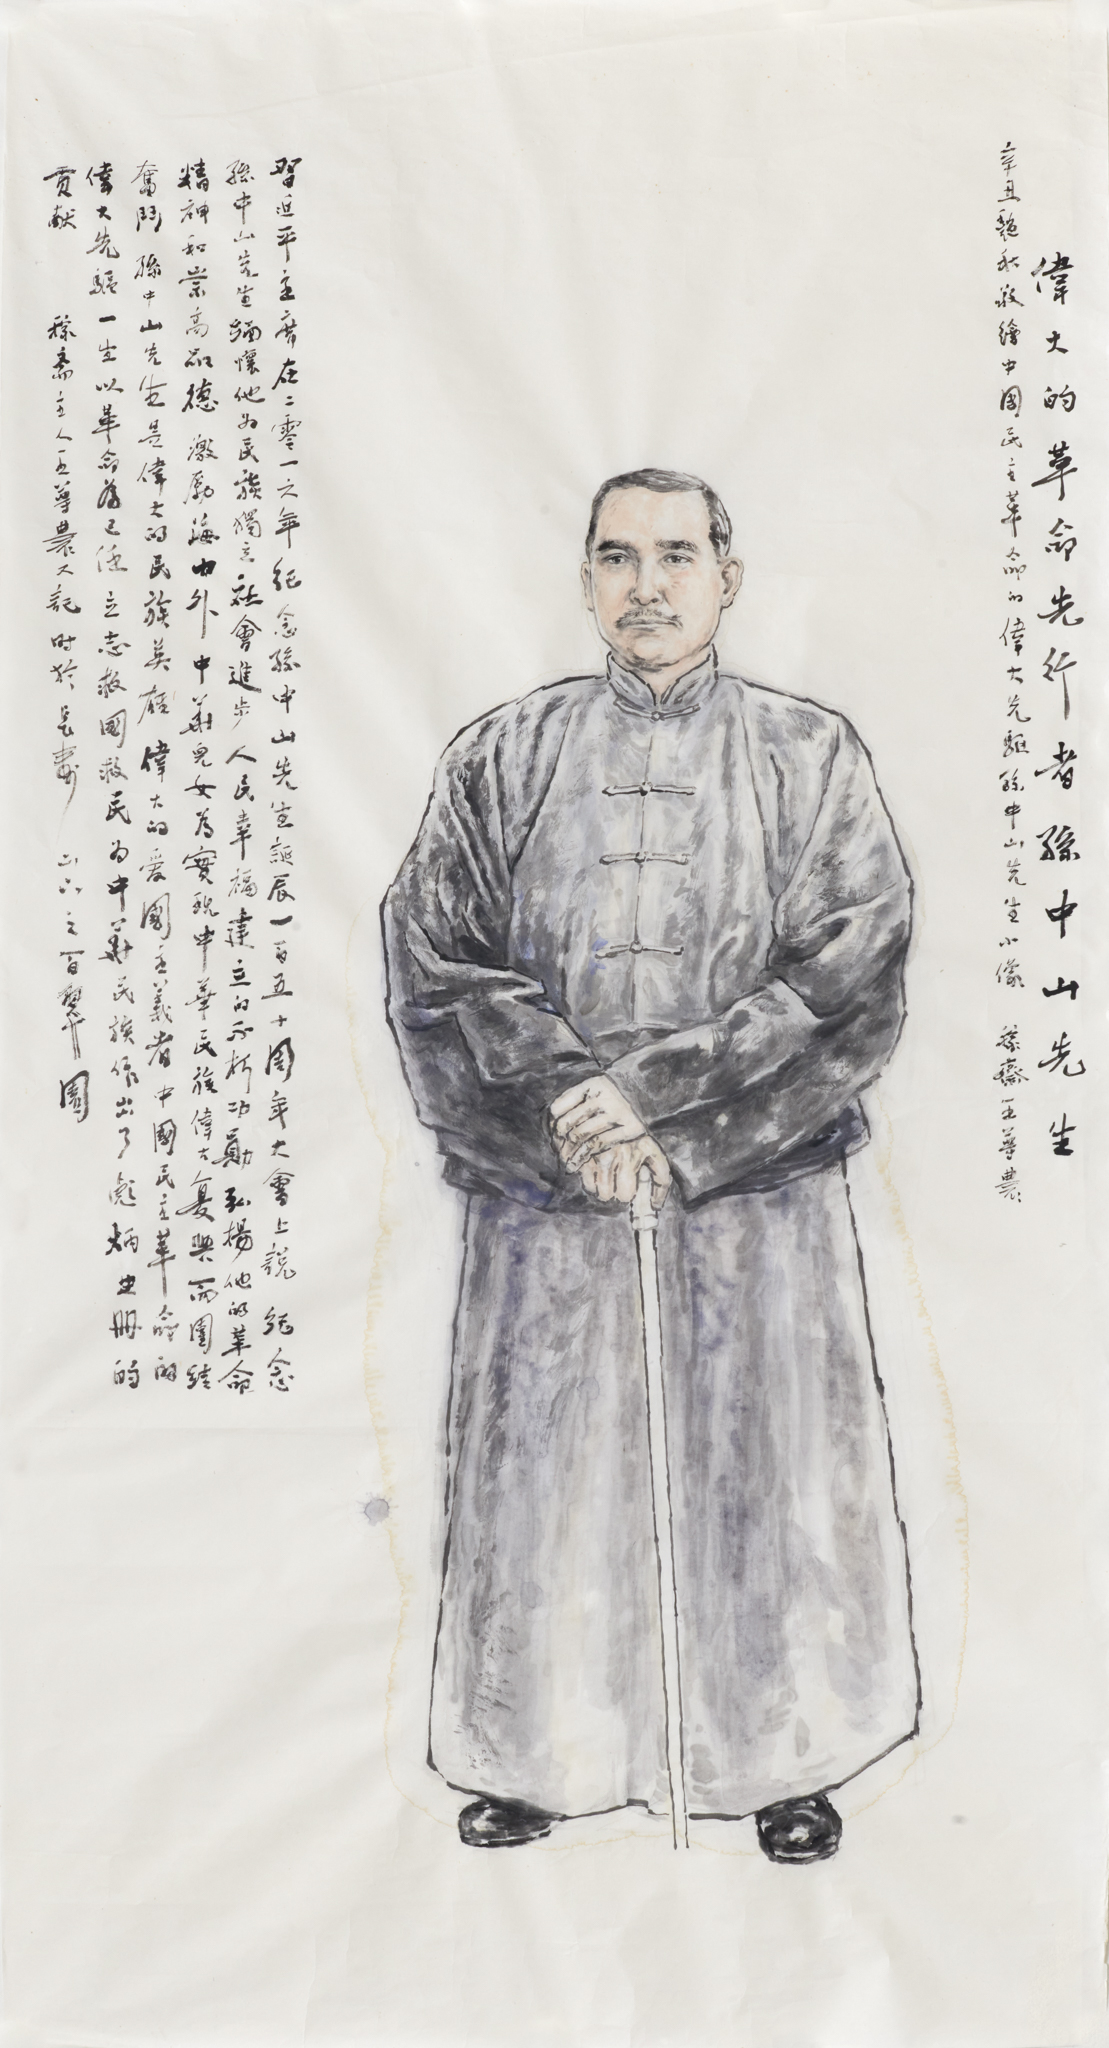 偉大的革命先行者孫中山先生
辛丑麴秋敬繪中國民主革命的偉大先驅孫中山先生小像 稼齋王尊農
習近平主席在二零一六年 紀念孫中山先生誕辰一百五十周年大會上說 紀念
孫中山先生緬懷他為民族獨立社會進步人民幸福建立的不朽功勛 弘揚他的革命
精神和崇高品德 激勵海內外中華兒女為實現中華民族偉大復興而團結
奮鬥 孫中山先生是偉大的民族英雄 偉大的愛國主義者 中國民主革命的
偉大先驅 一生以革命為己任 立志救國救民 為中華民族作出了彪炳史冊的
貢献 稼齋主人王尊農又記 時於長壽 之百翠園